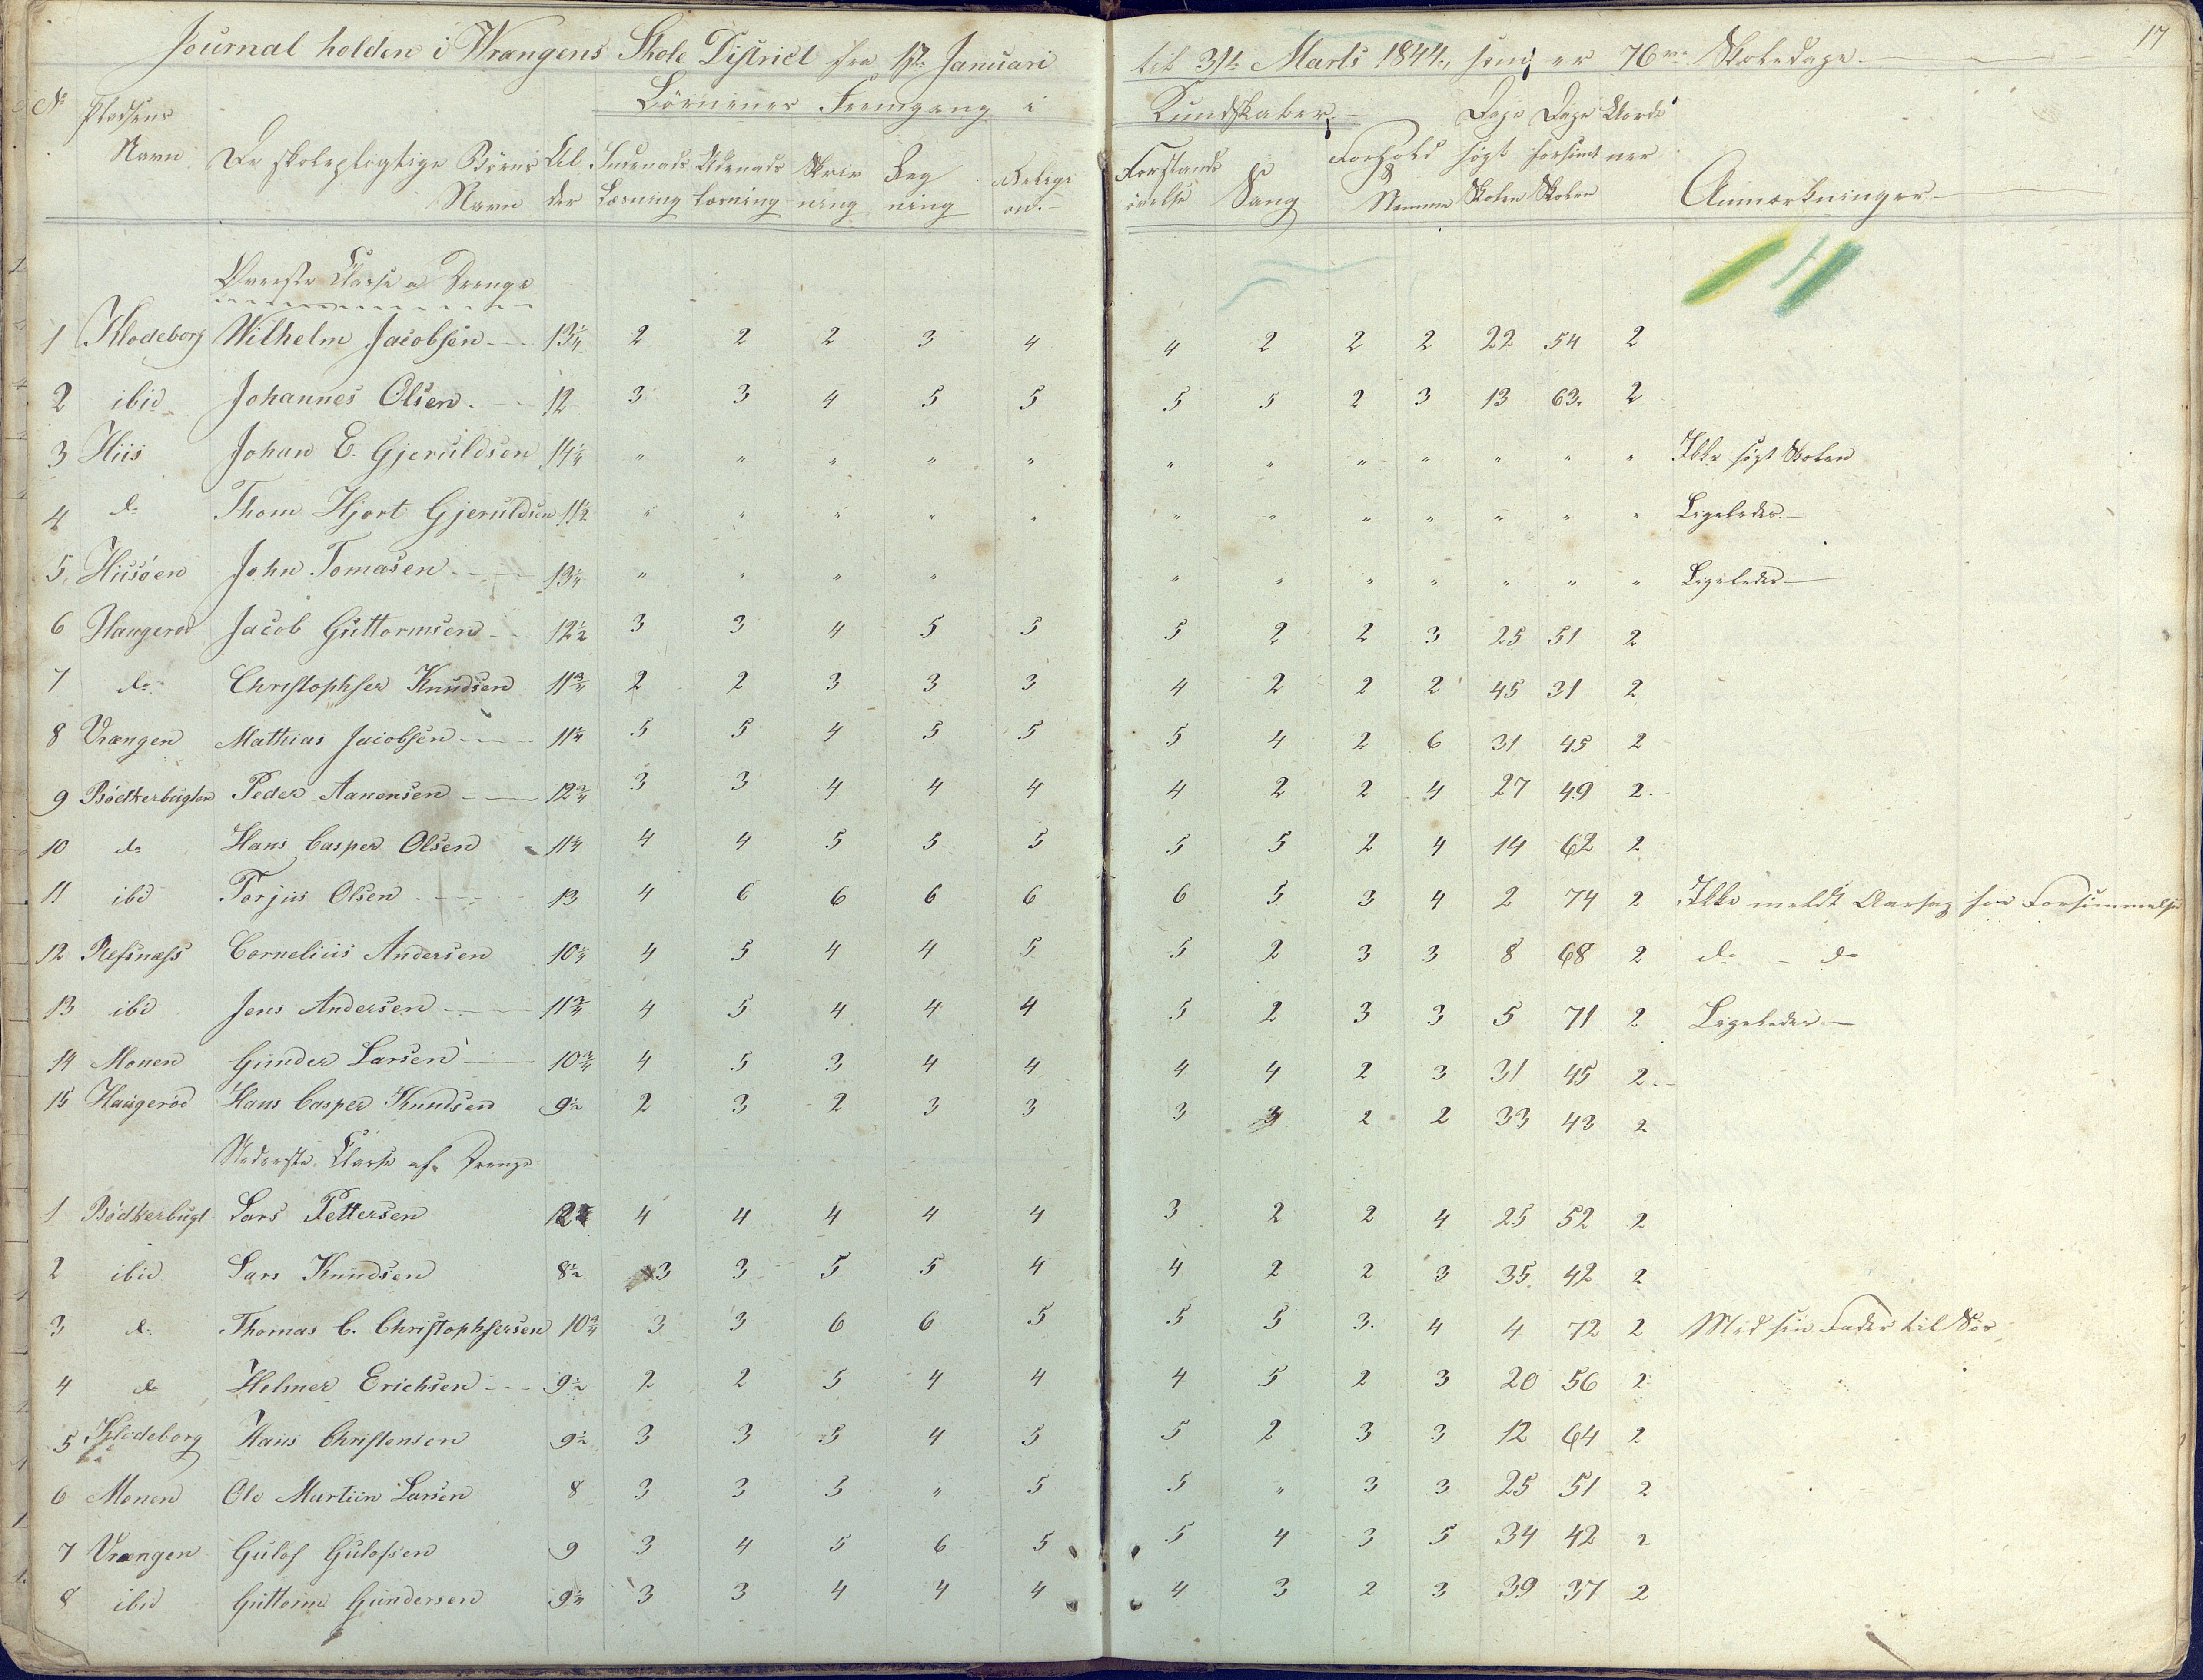 Journal holden i Wrangens Skole District fra 17de Januari til 31te Marts 1844, som er 76 Skoledage
17
Börnenes Fremgang i Kundskaber.
No Pladsens Navn De skolepligtige Börns Navn Alder Indenads Læsning Udenads Læsning Skrivning Regning Religion Forstands övelse Sang Forhold Nemme Dage sögt Skolen Dage forsömt Skolen Anmærkninger
Överste Classe a Drenge
1 Klodeborg Wilhelm Jacobsen 13¼ 2 2 2 3 4 4 2 2 2 22 54 2
2 ibid Johannes Olsen 12 3 3 4 5 5 5 5 2 3 13 63 2
3 Hiis Johan E. Gjeruldsen 14¼ " " " " " " " " " " " " Ikke sögt Skolen
4 do Thom Hjort Gjeruldsen 11½ " " " " " " " " " " " " Ligeledes
5 Hiisöen John Tomasen 13¼ " " " " " " " " " " " Ligeledes
6 Haugeröd Jacob Guttormsen 12½ 3 3 4 5 5 5 2 2 3 25 51 2
7 do Christophfer Knudsen 11¾ 2 2 3 3 3 4 2 2 2 45 31 2
8 Vrængen Mathias Jacobsen 11¼ 5 5 4 5 5 5 4 2 6 31 45 2
9 Bödkerbugten Peder Aanonsen 12¾ 3 3 4 4 4 4 2 2 4 27 49 2
10 do Hans Casper Olsen 11¼ 4 4 5 5 5 5 5 2 4 14 62 2
11 ibd Torjus Olsen 13 4 6 6 6 6 6 5 3 4 2 74 2 Ikke meldt Aarsag for Forsömmelse
12 Refsnæss Cornelius Andersen 10¼ 4 5 4 4 5 5 2 3 3 8 68 2 do - do
13 ibd Jens Andersen 11¾ 4 5 4 4 4 5 2 3 3 5 71 2 Ligeledes
14 Monen Gunder Larsen 10¾ 4 5 3 4 4 4 4 2 3 31 45 2
15 Haugeröd Hans Casper Knudsen 9½ 2 3 2 3 3 3 3 2 2 33 43 2
Nederste Classe af Drenge
1 Bödkerbugt Lars Pettersen 12 4 4 4 4 4 3 2 2 4 25 52 2
2 ibid Lars Knudsen 8½ 3 3 5 5 4 4 2 2 3 35 42 2
3 do Thomas C. Christophfersen 10¾ 3 3 6 6 5 5 5 3 4 4 72 2 Med sin Fader til Söes
4 do Helmer Erichsen 9½ 2 2 5 4 4 4 5 2 3 20 56 2
5 Klodeborg Hans Christensen 9½ 3 3 5 4 5 5 2 3 3 12 64 2
6 Monen Ole Martiin Larsen 8 3 3 5 " 5 5 " 3 3 25 51 2
7 Vrængen Gulof Gulofsen 9 3 4 5 6 5 5 4 3 5 34 42 2
8 ibid Guttorm Gundersen 9¼ 3 3 4 4 4 4 3 2 3 39 37 2